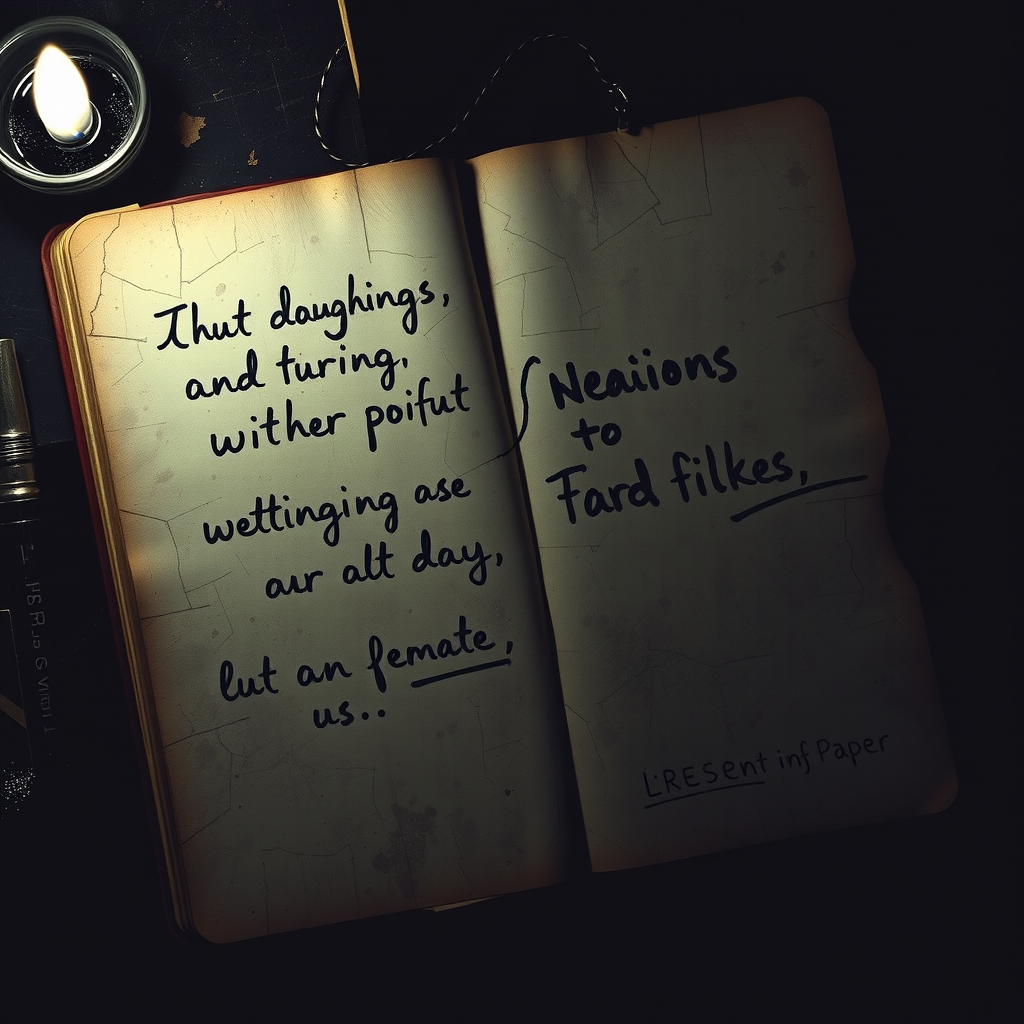 Thut daughings,
and turing,
wither poifut
wettinging ase
aur alt day,
lut an femate,
us..
Neaiions
to
Fard filkes,
L'RESent inf Paper